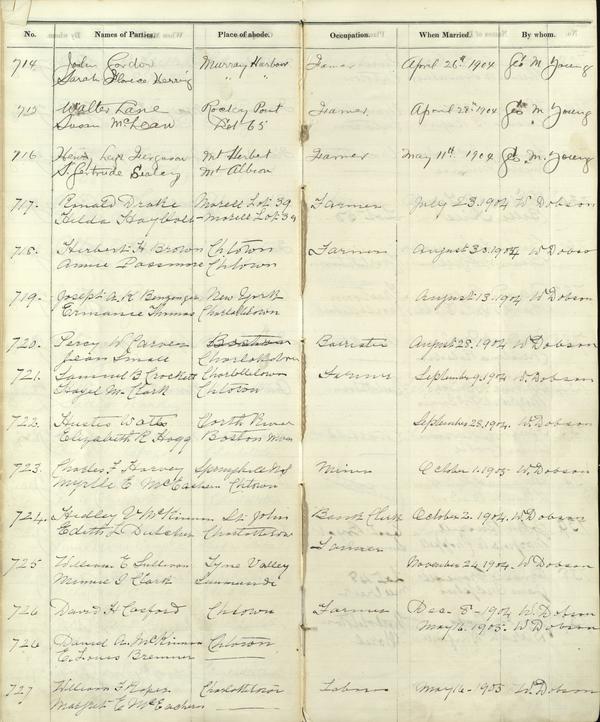 No. Names of Parties. Place of abode. Occupation. When Married. By whom.
714 John Gordon Murray Harbour Farmer April 26th 1904 Geo M. Young
Sarah Herring " "
715 Walter Lane Rocky Point Farmer April 28th 1904 Geo M Young
Susan McLean Lot 65
716 Henry Ferguson Mt Herbert Farmer May 11th 1904 Geo M. Young
S. Gertrude Mt Albion
717. Ronald Drake Morell Lot 39 Farmer July 23. 1904 W Dobson
Hilda Morell Lot 39
718. Herbert H Brown Chtown Farmer August 1904 W Dobson
Annie Passmore Chtown
719. Joseph A. K New York August 13. 1904 W. Dobson
Ermanie Thomas Charlottetown
720. Percy W Carver Boston Barrister August 28. 1904 W Dobson
Jean Small Charlottetown
721. Samuel B Crockett Charlottetown Farmer September 9. 1904 W. Dobson
Hazel M. Clark Chtown
722. Watts North River September 28. 1904. W. Dobson
Elizabeth R Hogg Boston Mass
723. Charles F Harvey Springhill N S Miner October 1. 1905 W. Dobson
Myrtle E McEachern Chtown
724. Hedley V McKinnon St. John Bank Clerk October 2. 1904. W. Dobson
Edith L Charlottetown
Farmer
725 William E Sullivan Tyne Valley November 24, 1904. W. Dobson
Minnie I Clark Summerside
726 David H Cosford Chtown Farmer Dec. 8 - 1904 W Dobson
May 16. 1905 - W Dobson
726 Daniel A. McKinnon Chtown
E. Louis Bremner
727 William F Chtown Labor May 16 - 1905 W. Dobson
Margret E McEachern